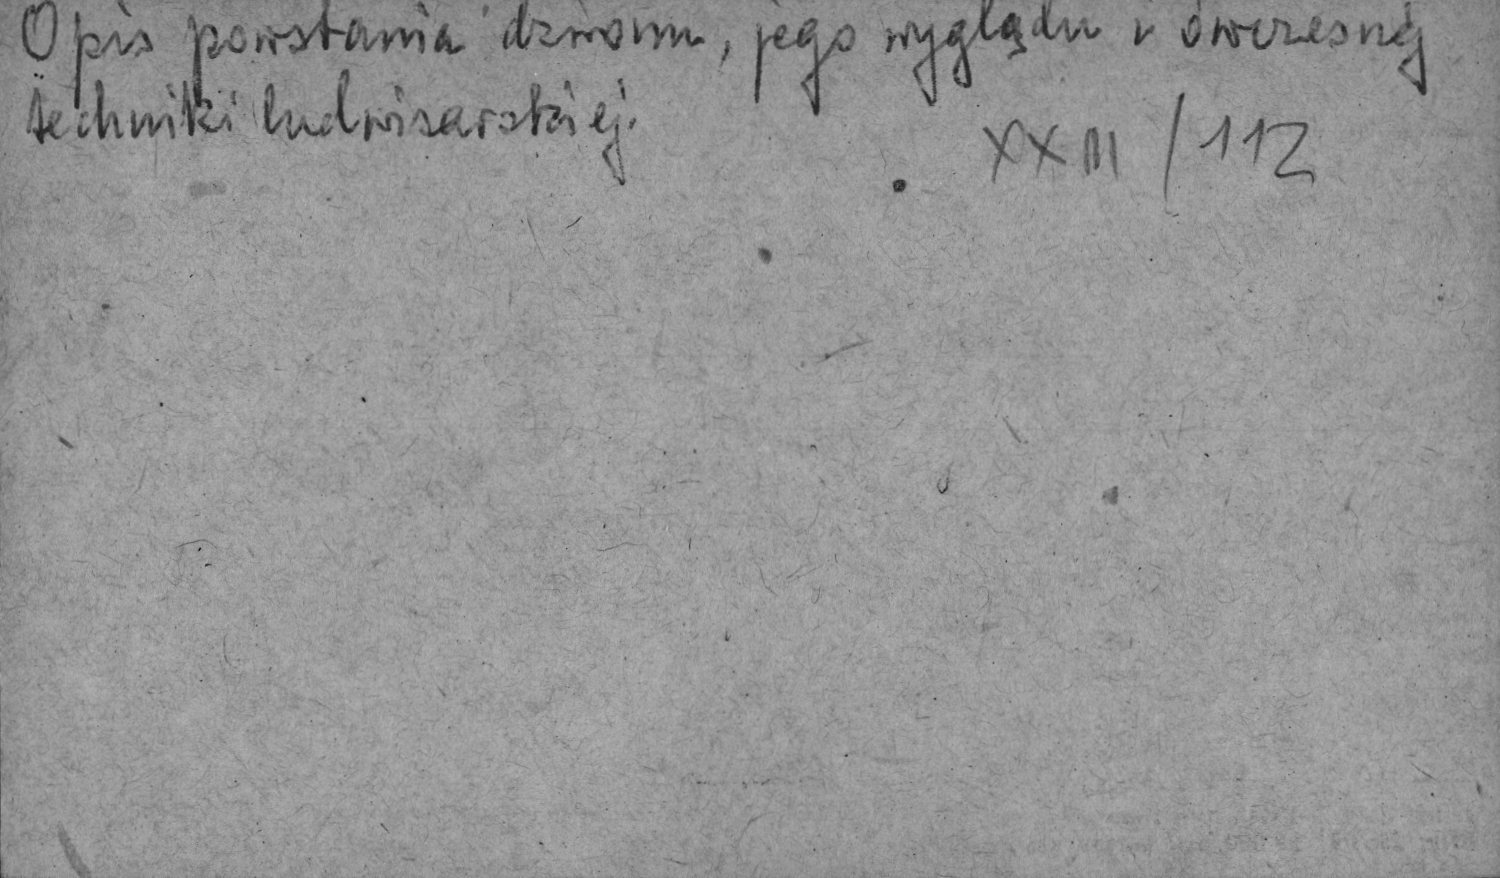 Opis powstania dzwonu, jego wyglądu i ówczesnej
techniki ludwisarskiej.
XXIII / 112